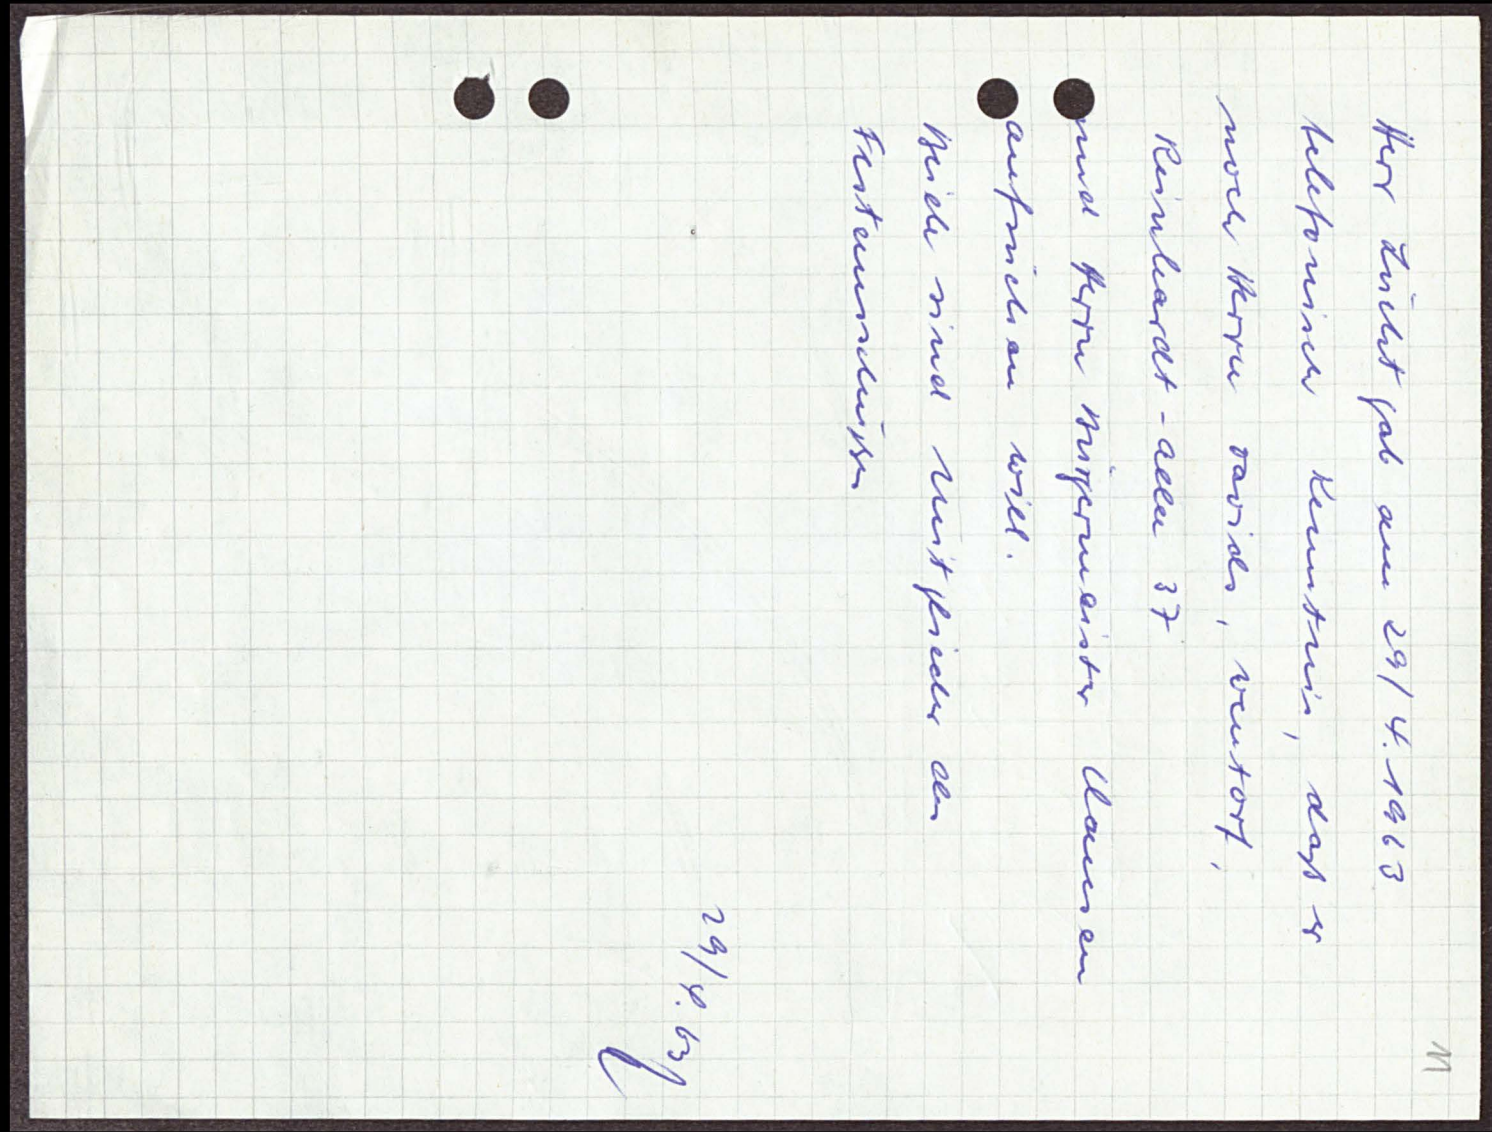 11
Herr Lücht gab am 29/4. 1963
telefonisch Kenntnis, daß er
noch Herrn Davids, Wentorf,
Reinhardt-Allee 37
und Herrn Bürgermeister Claussen
aufsuchen will.
Beide sind Mitglieder des
Festausschußes
29/4. 63